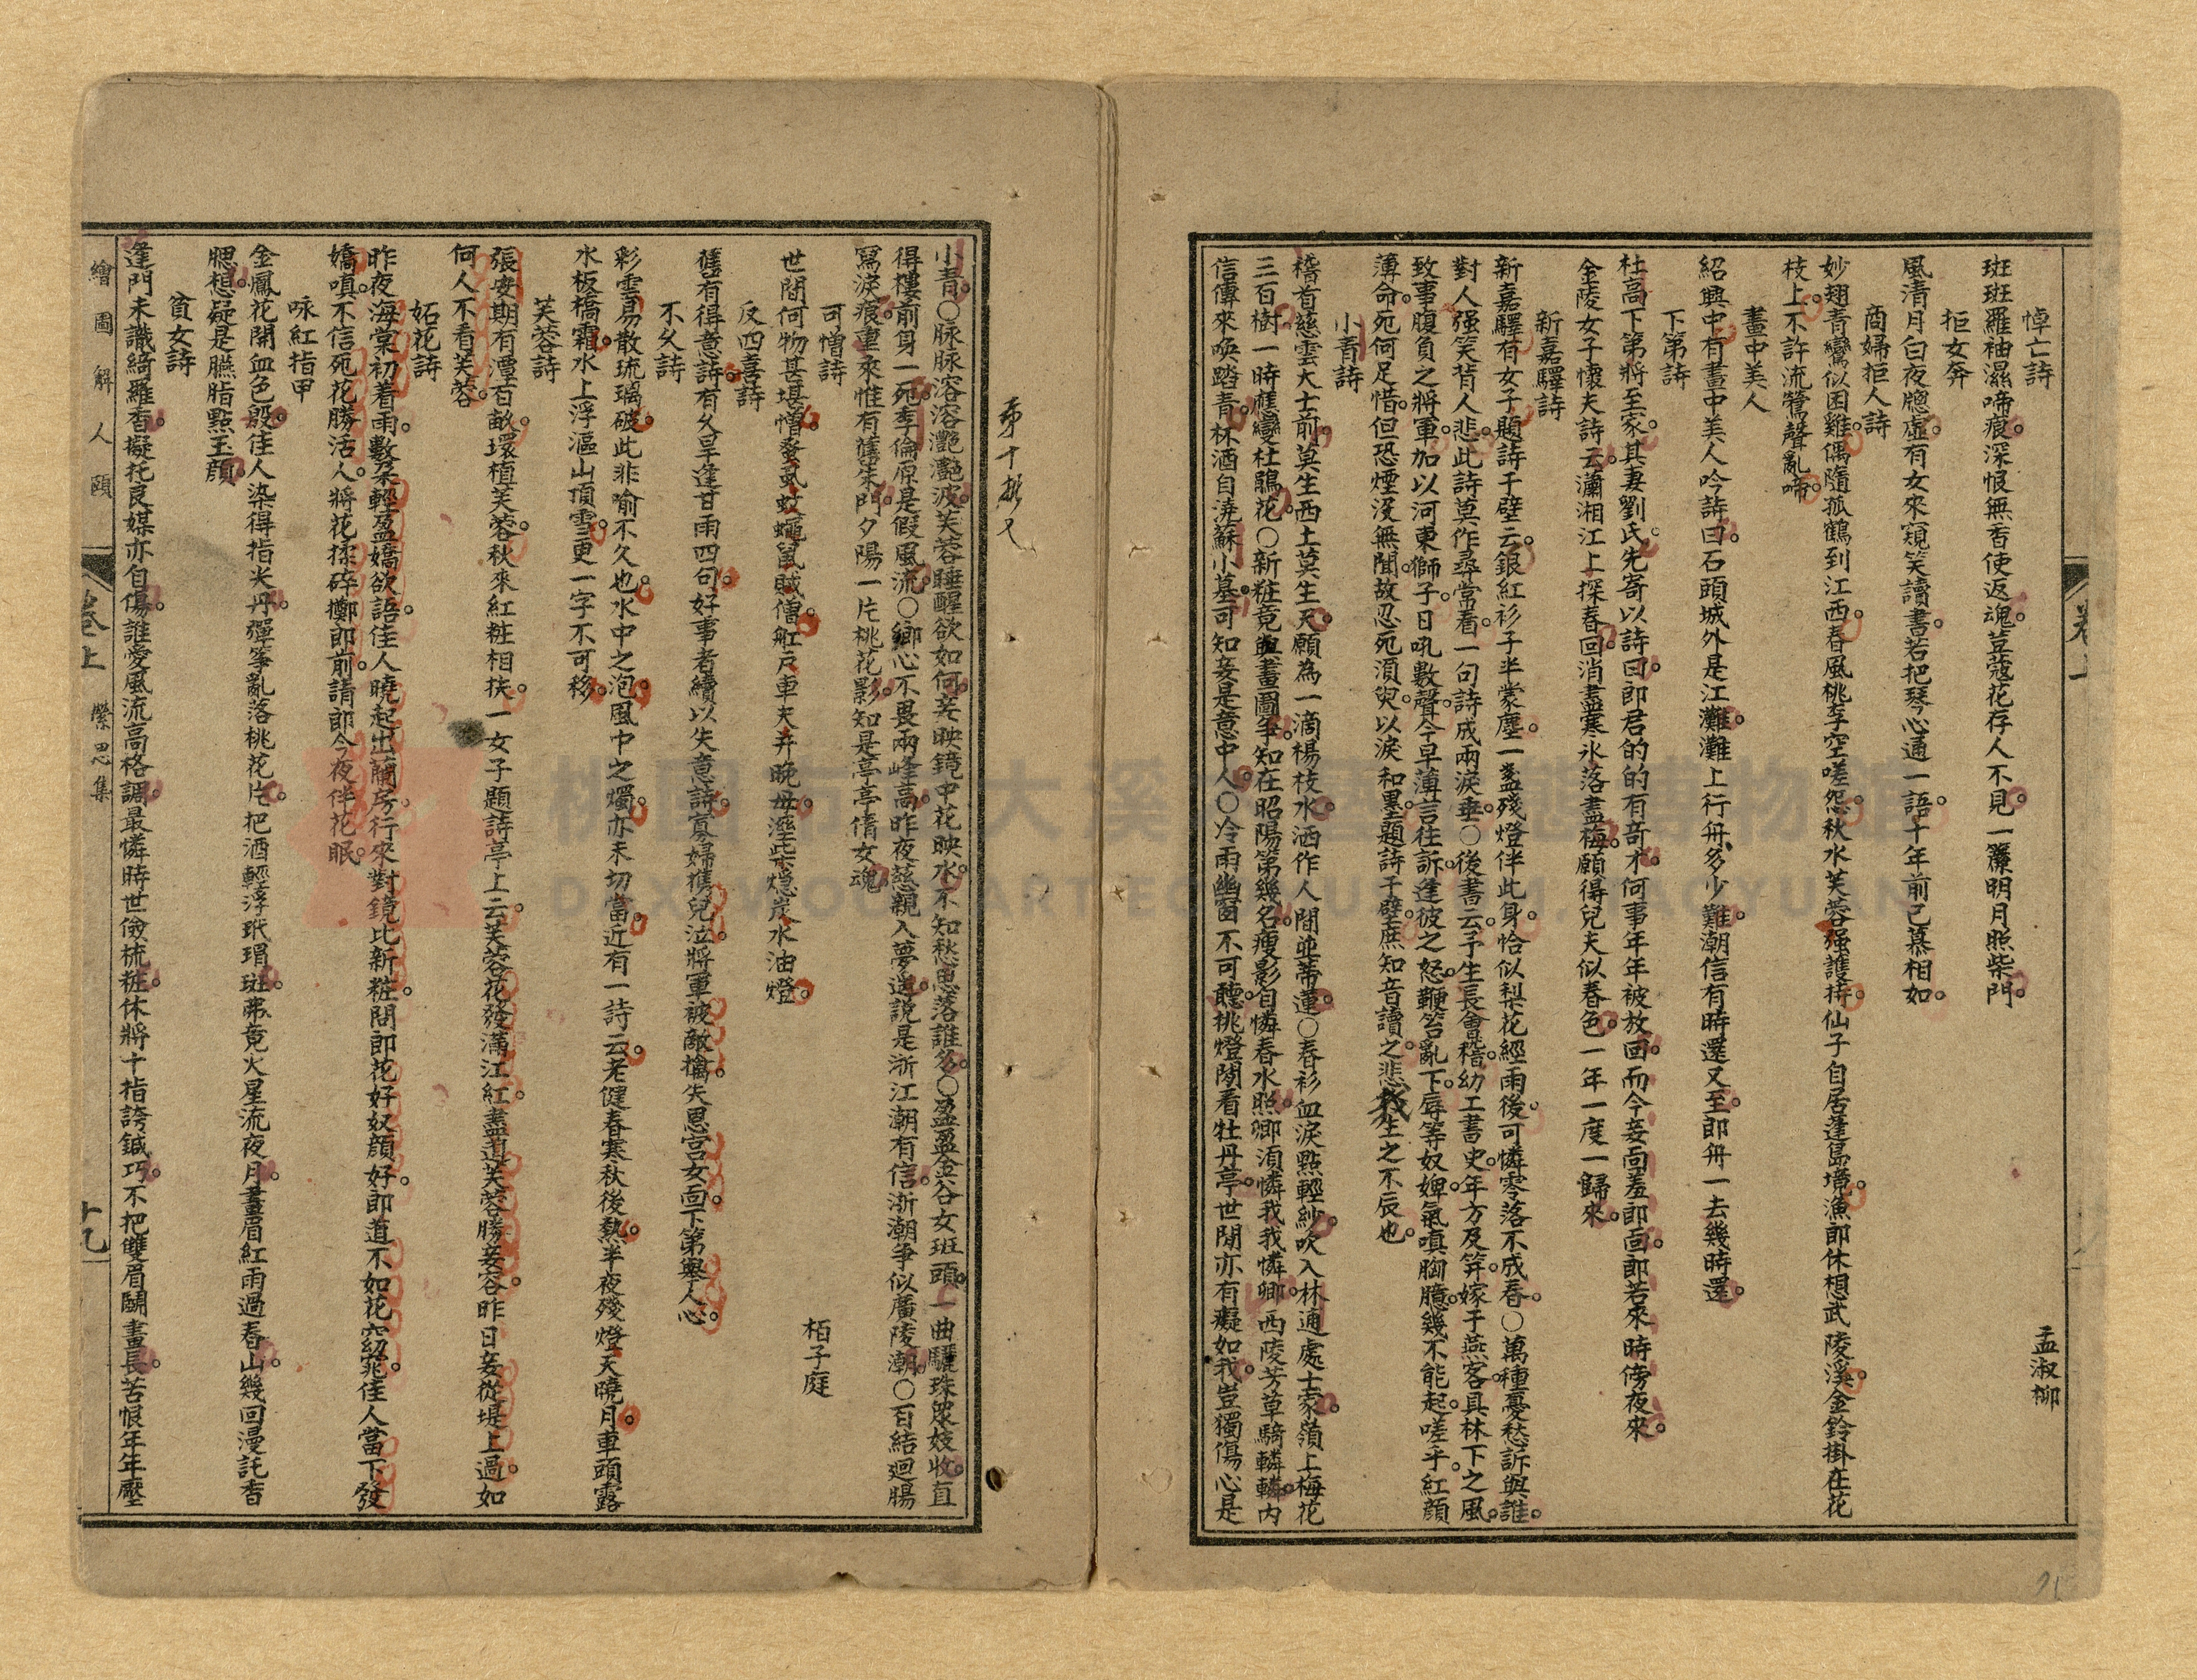 悼亡詩　孟淑柳
斑斑羅袖濕啼痕。深恨無香使返魂。荳蔻花存人不見。一簾明月照柴門。
拒女奔
風清月白夜牕虛。有女來窺笑讀書。若把琴心通一語。十年前已慕相如。
商婦拒人詩
妙翅青鸞似困雞。偶隨孤鶴到江西。春風桃李空嗟怨。秋水芙蓉强護持。仙子自居蓬島境。漁郎休想武陵溪。金鈴掛在花
枝上。不許流鶯聲亂啼。
畫中美人
紹興中有畫中美人吟詩曰。石頭城外是江灘。灘上行舟多少難。潮信有時還又至。郎舟一去幾時還。
下第詩
杜高下第將至家。其妻劉氏。先寄以詩曰。郎君的的有奇才。何事年年被放回。而今妾面羞郎面。郎若來時傍夜來。
金陵女子懷夫詩云。瀟湘江上探春回。消盡寒氷落盡梅。願得兒夫似春色。一年一度一歸來。
新嘉驛詩
新嘉驛有女子題詩于壁云。銀紅衫子半蒙塵。一盞殘燈伴此身。恰似梨花經雨後。可憐零落不成春。○萬種憂愁訴與誰。
對人强笑背人悲。此詩莫作尋常看。一句詩成兩淚垂。○後書云。予生長會稽。幼工書史。年方及笄。嫁于燕客。具林下之風。
致事腹負之將軍。加以河東獅子。日吼數聲。今早薄言往訴。逢彼之怒。鞭笞亂下。辱等奴婢。氣嗔胸臆。幾不能起。嗟乎。紅顏
薄命。死何足惜。但恐煙沒無聞。故忍死須臾。以淚和墨。題詩于壁。庶知音讀之。悲我生之不辰也。
小青詩
稽首慈雲大士前。莫生西土莫生天。願為一滴楊枝水。洒作人間並蒂蓮。○春衫血淚點輕紗。吹入林逋處士家。嶺上梅花
三百樹。一時應變杜鵑花。○新粧竟與畫圖爭。知在昭陽第幾名。瘦影自憐春水照。卿須憐我我憐卿。西陵芳草騎轔轔。內
信傳來喚踏青。杯酒自澆蘇小墓。可知妾是意中人。○冷雨幽窗不可聽。挑燈閒看牡丹亭。世間亦有癡如我。豈獨傷心是
第十拾又
小青。○脉脉溶溶灔灔波。芙蓉睡醒欲如何。妾映鏡中花映水。不知愁思落誰多。○盈盈金谷女班頭。一曲驪珠眾妓收。直
得樓前身一死。李倫原是假風流。○鄉心不畏兩峰高。昨夜慈親入夢遥。說是浙江潮有信。浙潮爭似廣陵潮。○百結迴腸
寫淚痕。重來惟有舊朱門。夕陽一片桃花影。知是亭亭倩女魂。
可憎詩　栢子庭
世間何物甚堪憎。蚤虱蚊蠅鼠賊僧。舡戶車夫并晚母。溼柴熄炭水油燈。
反四喜詩
舊有得意詩。有久旱逢甘雨四句。好事者續以失意詩。寡婦攜兒泣。將軍被敵擒。失恩宮女面。下第舉人心。
不久詩
彩雲易散琉璃破。此非喻不久也。水中之泡。風中之燭。亦未切當。近有一詩云。老健春寒秋後熱。半夜殘燈天曉月。車頭露
水板橋霜。水上浮漚山頂雪。更一字不可移。
芙蓉詩
張安期有潭百畝。環植芙蓉。秋來紅粧相扶。一女子題詩亭上云。芙蓉花發滿江紅。盡道芙蓉勝妾容。昨日妾從堤上過。如
何人不看芙蓉。
妬花詩
昨夜海棠初着雨。數朵輕盈嬌欲語。佳人曉起出蘭房。行來對鏡比新粧。問郎花好奴顏好。郎道不如花窈窕。佳人當下發
嬌嗔。不信死花勝活人。將花揉碎擲郎前。請郎今夜伴花眠。
咏紅指甲
金鳳花開血色殷。佳人染得指尖丹。彈箏亂落桃花片。把酒輕浮玳瑁斑。弗竟火星流夜月。畫眉紅雨過春山。幾回漫託香
腮想。疑是臙脂點玉顏。
貧女詩
逢門未識綺羅香。擬托良媒亦自傷。誰愛風流高格調。最憐時世儉梳粧。休將十指誇鍼巧。不把雙眉鬭畫長。苦恨年年壓
繪圖解人頤　卷上　縈思集　十九
桃園市立大溪木藝生態博物館
DAXI WOOD ART ECOMUSEUM, TAOYUAN